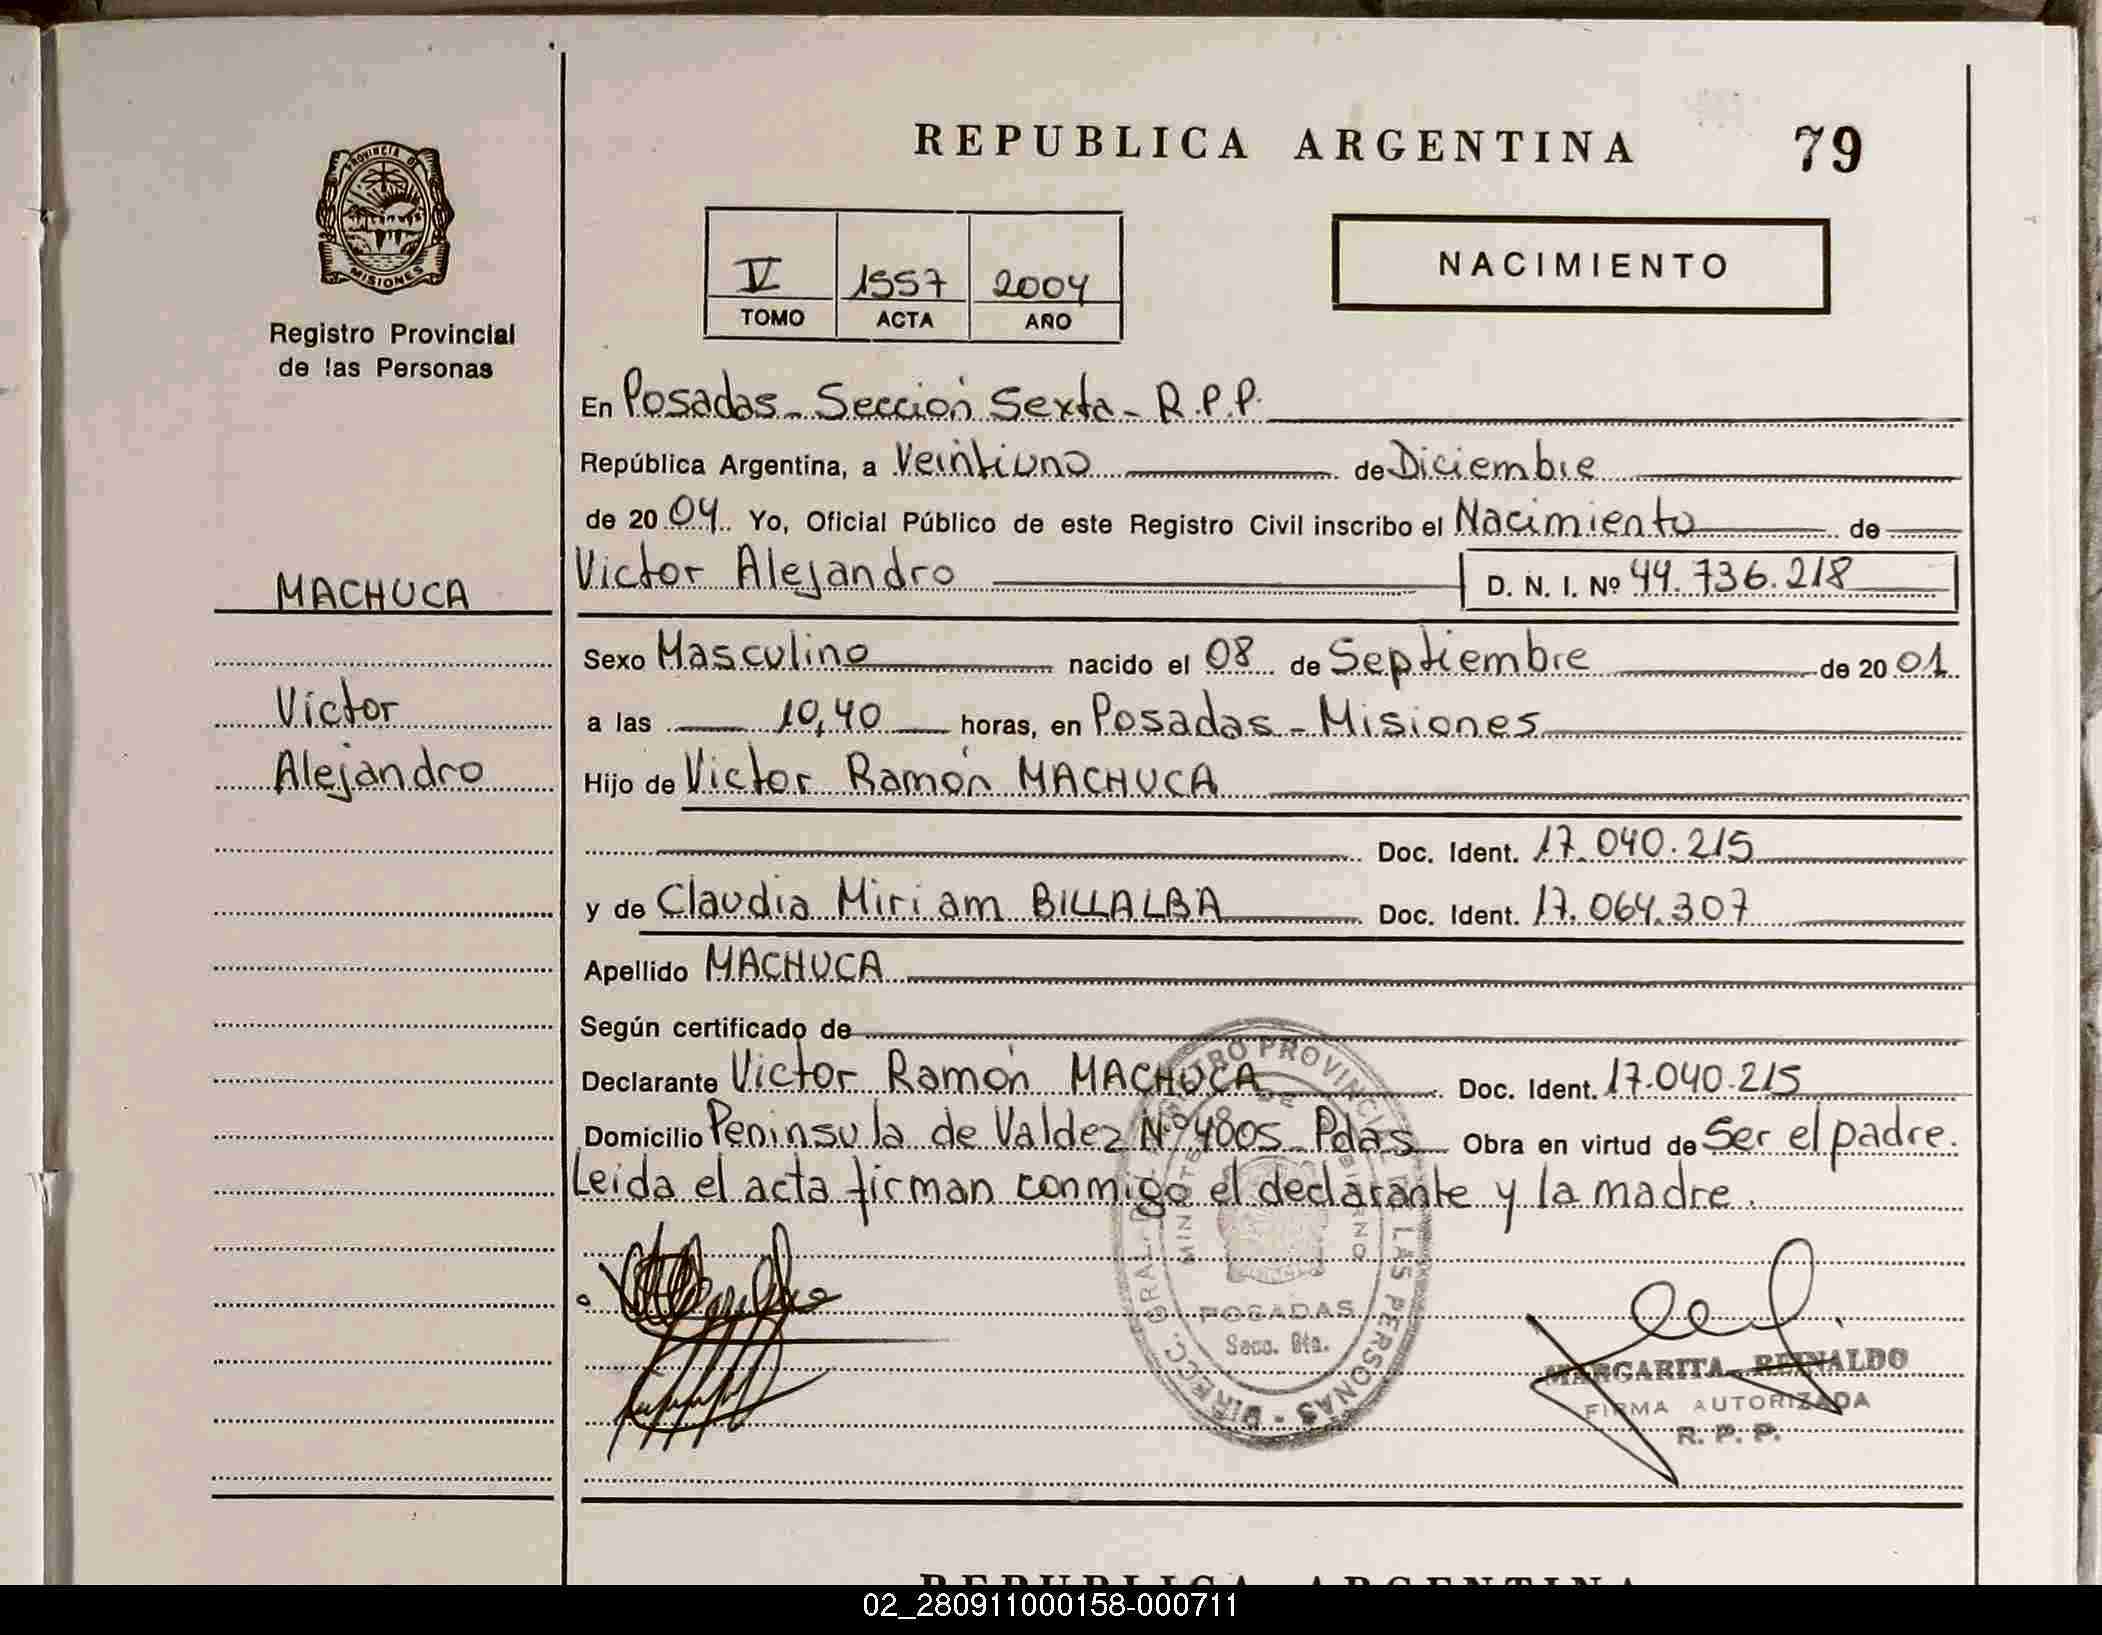 REPUBLICA ARGENTINA 79
PROVINCIA DE
MISIONES
Registro Provincial
de las Personas
V 1557 2004
TOMO ACTA AÑO
NACIMIENTO
En Posadas - Sección Sexta - R.P.P.
República Argentina, a Veintiuno de Diciembre
de 2004 Yo, Oficial Público de este Registro Civil inscribo el Nacimiento de
MACHUCA
Victor Alejandro D. N. I. Nº 44.736.218
Sexo Masculino nacido el 08 de Septiembre de 2001
Victor
a las 10,40 horas, en Posadas - Misiones
Alejandro
Hijo de Victor Ramón MACHUCA
Doc. Ident. 17.040.215
y de Claudia Miriam BILLALBA Doc. Ident. 17.064.307
Apellido MACHUCA
Según certificado de
Declarante Victor Ramón MACHUCA Doc. Ident. 17.040.215
Domicilio Peninsula de Valdez Nº 4805 - Pdas Obra en virtud de Ser el padre.
Leida el acta firman conmigo el declarante y la madre.
POSADAS
Secc. 6ta.
MARGARITA REINALDO
FIRMA AUTORIZADA
R. P. P.
REPUBLICA ARGENTINA
02_280911000158-000711